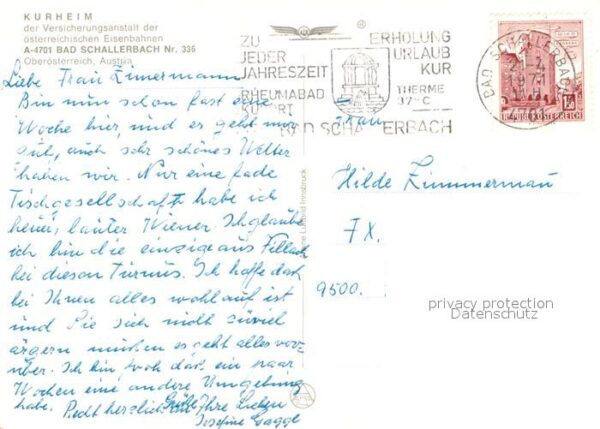 KURHEIM
der Versicherungsanstalt der
österreichischen Eisenbahnen
A-4701 BAD SCHALLERBACH Nr. 336
Oberösterreich, Austria
Liebe Frau Zimmermann
Bin nun schon fast eine
Woche hier, und es geht mir
gut, auch sehr schönes Wetter
haben wir. Nur eine fade
Tischgesellschaft habe ich
heuer, lauter Wiener. Ich glaube
ich bin die einzige aus Villach
bei diesem Turnus. Ich hoffe daß
bei Ihnen alles wohlauf ist
und Sie sich nicht zuviel
ärgern müssen es geht alles vor-
über. Ich bin froh daß ein paar
Wochen eine andere Umgebung
habe. Recht herzliche Grüße Ihre Lieben
Josefine
ZU
JEDER
JAHRESZEIT
RHEUMABAD
KURORT
BAD SCHALLERBACH
ERHOLUNG
URLAUB
KUR
THERME
37°C
BAD SCHALLERBACH
REPUBLIK ÖSTERREICH
Frau
Hilde Zimmermann
FX.
9500.
privacy protection
Datenschutz